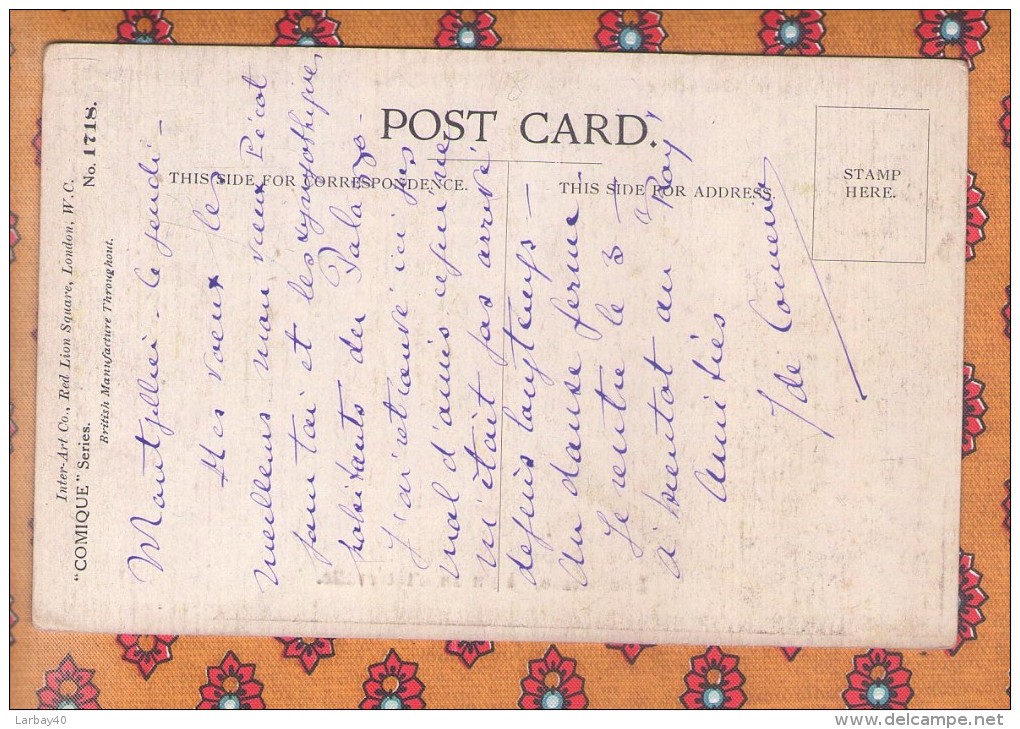 POST CARD.
THIS SIDE FOR CORRESPONDENCE.
THIS SIDE FOR ADDRESS.
STAMP
HERE.
Inter-Art Co., Red Lion Square, London, W.C.
"COMIQUE" Series.
No. 1718.
British Manufacture Throughout.
Montpellier - le jeudi -
Mes voeux les
meilleurs mon vieux Pécot
pour toi et les sympathiques
habitants du Palace -
J'ai retrouvé ici pas
mal d'amis ce qui ne
m'était pas arrivé
depuis longtemps -
On danse ferme
Je rentre le 3 -
à bientot au "Ray"
Amitiés
J de
Larbay40
www.delcampe.net